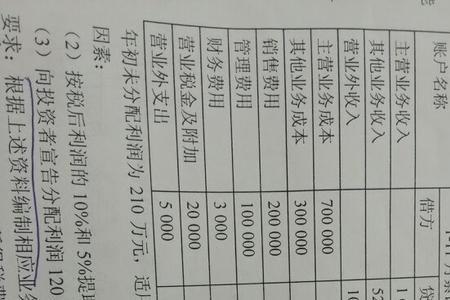 账户名称 借方 贷
主营业务收入 1
其他业务收入 5
营业外收入 10
主营业务成本 700 000
其他业务成本 300 000
销售费用 200 000
管理费用 100 000
财务费用 3 000
营业税金及附加 20 000
营业外支出 5 000
年初未分配利润为 210 万元，适
因素：
（2）按税后利润的 10%和 5%提
（3）向投资者宣告分配利润 120
要求：根据上述资料编制相应业